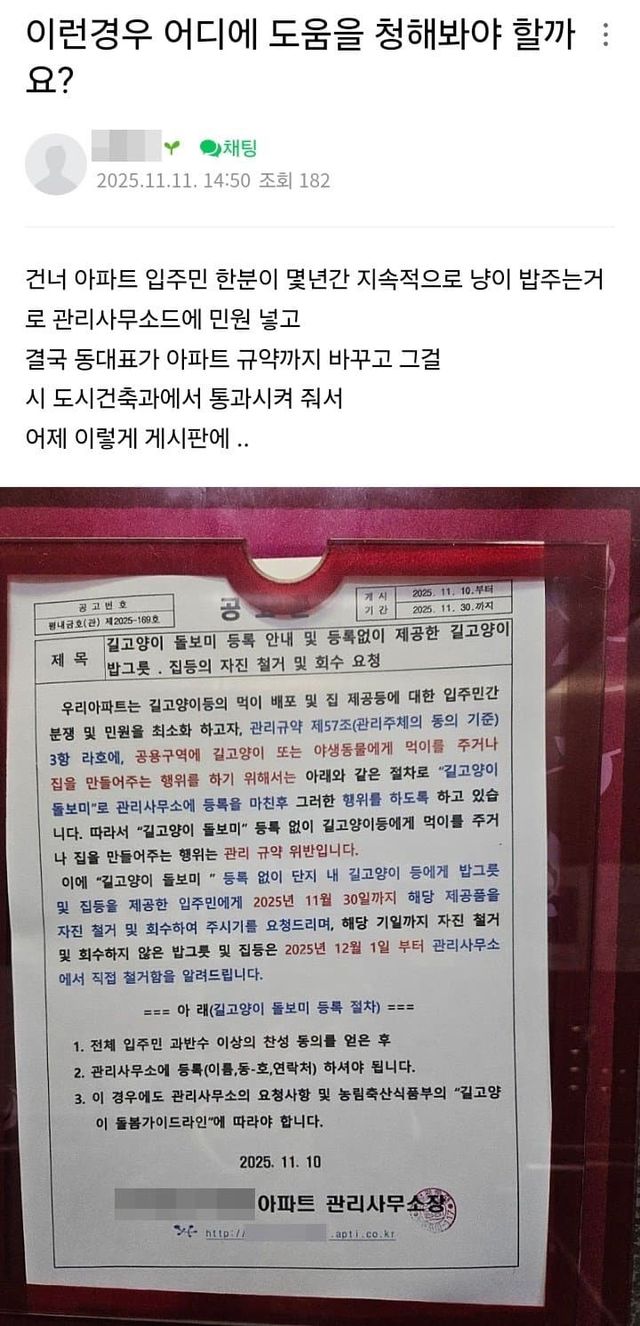 이런경우 어디에 도움을 청해봐야 할까
요?
채팅
2025.11.11. 14:50 조회 182
건너 아파트 입주민 한분이 몇년간 지속적으로 냥이 밥주는거
로 관리사무소드에 민원 넣고
결국 동대표가 아파트 규약까지 바꾸고 그걸
시 도시건축과에서 통과시켜 줘서
어제 이렇게 게시판에 ..
공 고 번 호
평내금호(관) 제2025-169호
공
게 시
기 간
2025. 11. 10.부터
2025. 11. 30.까지
제 목
길고양이 돌보미 등록 안내 및 등록없이 제공한 길고양이
밥그릇 . 집등의 자진 철거 및 회수 요청
우리아파트는 길고양이등의 먹이 배포 및 집 제공등에 대한 입주민간
분쟁 및 민원을 최소화 하고자, 관리규약 제57조(관리주체의 동의 기준)
3항 라호에, 공용구역에 길고양이 또는 야생동물에게 먹이를 주거나
집을 만들어주는 행위를 하기 위해서는 아래와 같은 절차로 “길고양이
돌보미”로 관리사무소에 등록을 마친후 그러한 행위를 하도록 하고 있습
니다. 따라서 “길고양이 돌보미” 등록 없이 길고양이등에게 먹이를 주거
나 집을 만들어주는 행위는 관리 규약 위반입니다.
이에 “길고양이 돌보미 ” 등록 없이 단지 내 길고양이 등에게 밥그릇
및 집등을 제공한 입주민에게 2025년 11월 30일까지 해당 제공품을
자진 철거 및 회수하여 주시기를 요청드리며, 해당 기일까지 자진 철거
및 회수하지 않은 밥그릇 및 집등은 2025년 12월 1일 부터 관리사무소
에서 직접 철거함을 알려드립니다.
=== 아 래(길고양이 돌보미 등록 절차) ===
1. 전체 입주민 과반수 이상의 찬성 동의를 얻은 후
2. 관리사무소에 등록(이름,동-호,연락처) 하셔야 됩니다.
3. 이 경우에도 관리사무소의 요청사항 및 농림축산식품부의 “길고양
이 돌봄가이드라인”에 따라야 합니다.
2025. 11. 10
아파트 관리사무소장
http:// .apti.co.kr